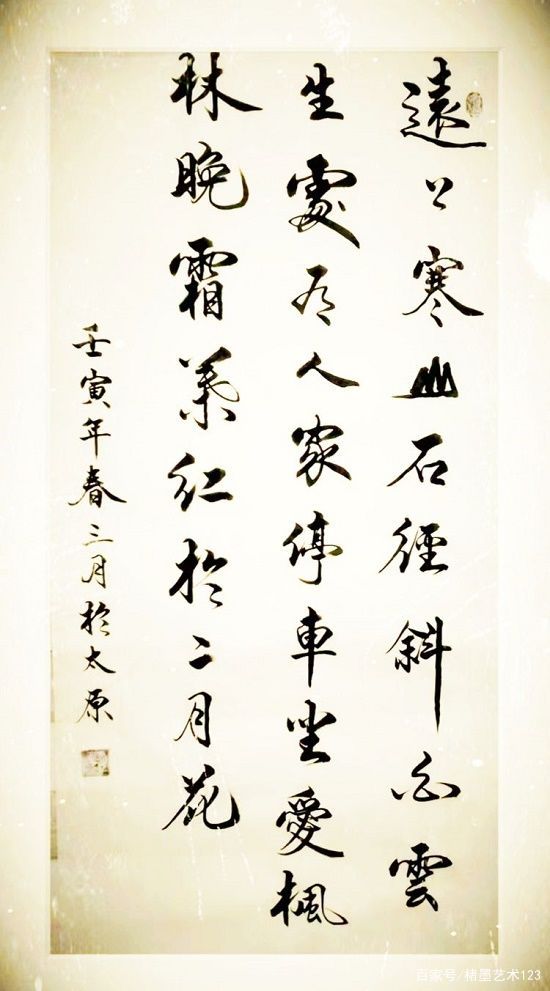 遠上寒山石徑斜白雲
生處有人家停車坐愛楓
林晚霜葉紅於二月花
壬寅年春三月於太原
百家号/楮墨艺术123